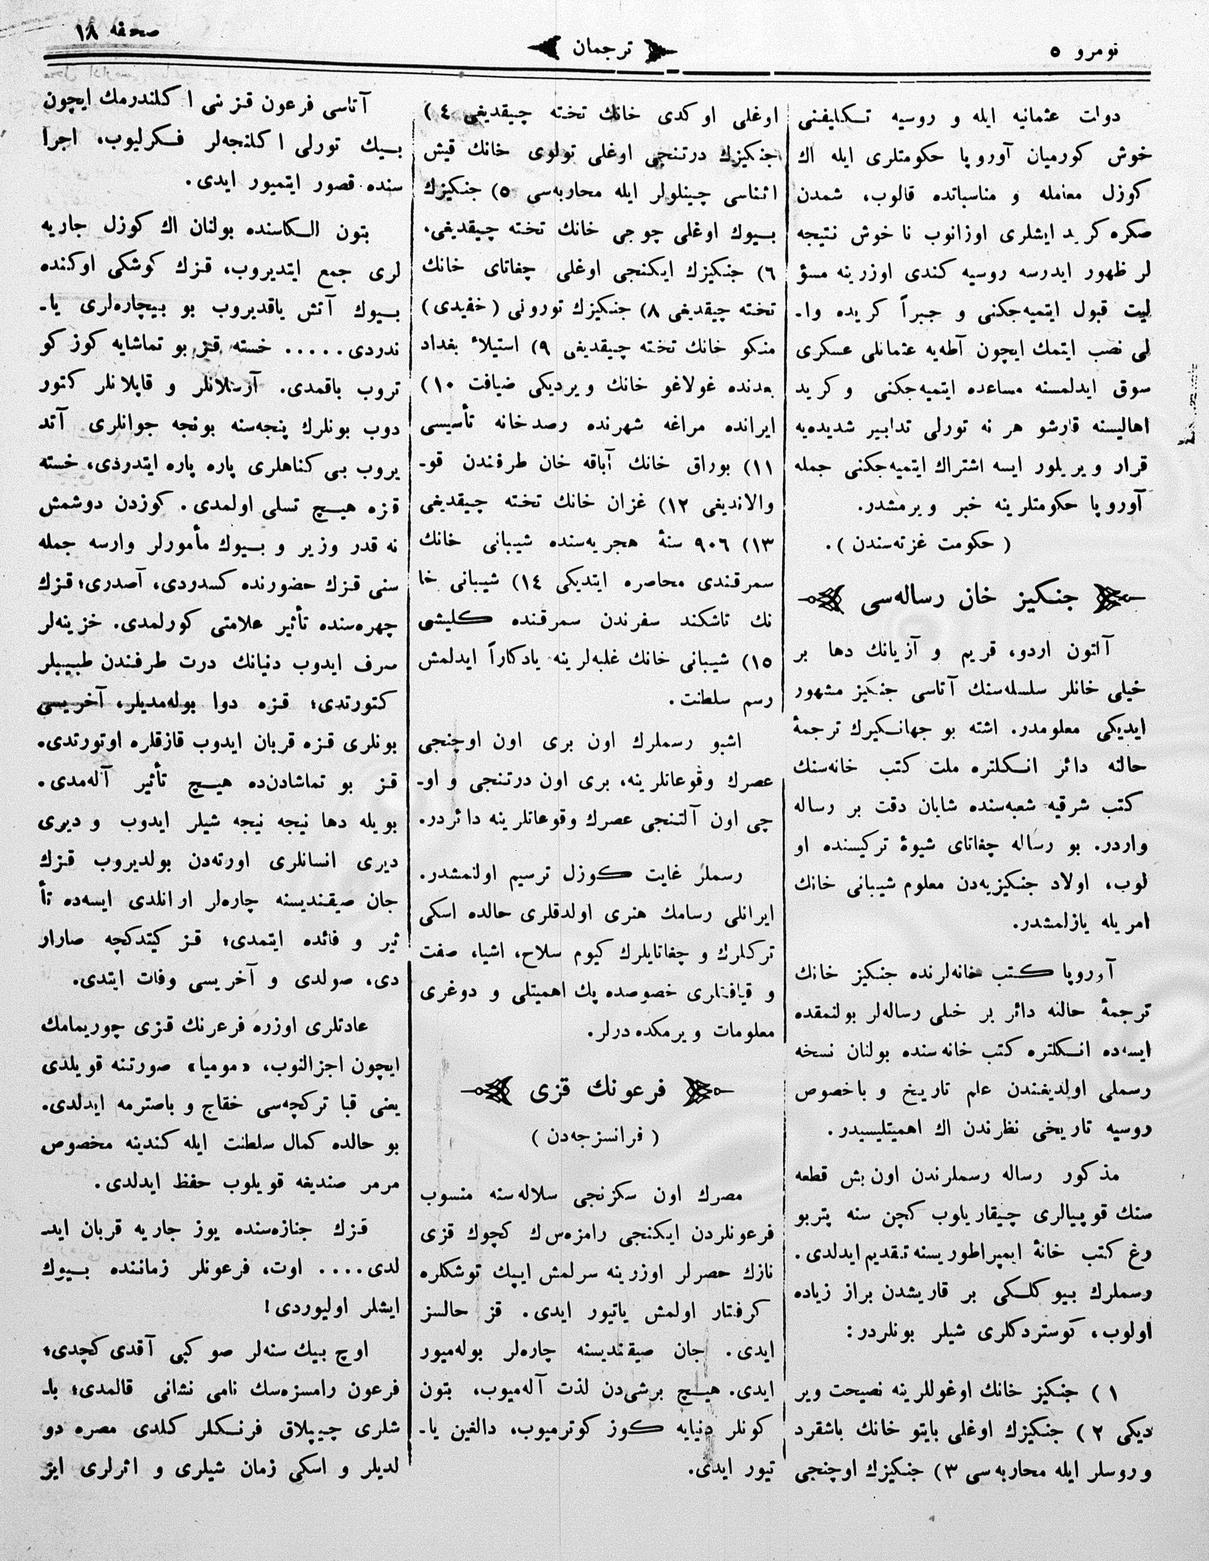 نومرو ٥
ترجمان
صحفه ١٨
دولت عثمانیه ایله و روسیه تـكـلیفنی
خوش كورمیان آوروپا حكومتلری ایله اك
كوزل معامله و مناسباتده قالوب، شمدن
صكره كرید ایشلری اوزانوب نا خوش نتیجه
لر ظهور ایدرسه روسیه كندی اوزرینه مسؤ
لیت قبول ایتمیه‌جكنی و جبراً كریده وا۔
لی نصب ایتمك ایچون آطه‌یه عثمانلی عسكری
سوق ایدلمسنه مساعده ایتمیه‌جكنی و كرید
اهالیسنه قارشو هر نه تورلی تدابیر شدیده‌یه
قرار ویریلور ایسه اشتراك ایتمیه‌جكنی جمله
آوروپا حكومتلرینه خبر ویرمشدر.
( حكومت غزته‌سندن ).
جنـكیز خان رساله‌سی
آلتون اردو، قریم و آزیانك دها بر
خیلی خانلر سلسله‌سنك آتاسی جنكیز مشهور
ایدیكی معلومدر. اشته بو جهانـكیرك ترجمۀ
حالنه دائر انـكلتره ملت كتب خانه‌سنك
كتب شرقیه شعبه‌سنده شایان دقت بر رساله
واردر. بو رساله چغاتای شیوۀ تركیسنده او
لوب، اولاد جنكیزیه‌دن معلوم شیبانی خانك
امریله یازلمشدر.
آوروپا كـتب خانه‌لرنده جنكیز خانك
ترجمۀ حالنه دائر بر خلی رساله‌لر بولنمقده
ایسه‌ده انـكلتره كتب خانه‌سنده بولنان نسخه
رسملی اولدیغندن علم تاریخ و باخصوص
روسیه تاریخی نظرندن اك اهمیتلیسیدر.
مذكور رساله رسملرندن اون بش قطعه
سنك قوپیالری چیقاریلوب كچن سنه پتربو
رغ كتب خانۀ ایمپراطوریسنه تقدیم ایدلدی.
رسملرك بیوكلـكی بر قاریشدن براز زیاده
اولوب، كوستردكلری شیلر بونلردر:
١ ) جنكیز خانك اوغوللرینه نصیحت ویر
دیكی ٢ ) جنكیزك اوغلی بایتو خانك باشقرد
و روسلر ایله محاربه‌سی ٣) جنكیزك اوچنجی
اوغلی اوكدی خانك تخته چیقدیغی ٤ )
جنكیزك درتنجی اوغلی تولوی خانك قیش
اثناسی چینلولر ایله محاربه‌سی ٥) جنكیزك
بـیوك اوغلی چوجی خانك تخته چیقدیغی.
٦) جنكیزك ایكنجی اوغلی چغاتای خانك
تخته چیقدیغی ٨) جنكیزك تورونی ( خفیدی )
منكو خانك تخته چیقدیغی ٩) استیلاء بغداد
بعدنده غولاغو خانك ویردیكی ضیافت ١٠)
ایرانده مراغه شهرنده رصدخانه تأسیسی
١١) بوراق خانك آباقه خان طرفندن قو۔
والاندیغی ١٢) غزان خانك تخته چیقدیغی
١٣) ٩٠٦ سنۀ هجریه‌سنده شیبانی خانك
سمرقندی محاصره ایتدیكی ١٤) شیبانی خا
نك تاشكند سفرندن سمرقنده كلیشی
١٥) شیبانی خانك غلبه‌لرینه یادكاراً ایدلمش
رسم سلطنت.
اشبو رسملرك اون بری اون اوچنجی
عصرك وقوعاتلرینه، بری اون درتنجی و او۔
چی اون آلتنجی عصرك وقوعاتلرینه دائردر.
رسملر غایت كوزل ترسیم اولنمشدر.
ایرانلی رسامك هنری اولدقلری حالده اسكی
تركلرك و چغاتایلرك كیوم سلاح، اشیا، صفت
و قیافتلری خصوصده پك اهمیتلی و دوغری
معلومات ویرمكده درلر.
فرعونك قزی
( فرانسزجه‌دن )
مصرك اون سكزنجی سلاله‌سنه منسوب
فرعونلردن ایكنجی رامزه‌س‌ك كچوك قزی
نازك حصرلر اوزرینه سرلمش ایپك توشكلره
كرفتار اولمش یاتیور ایدی. قز حالسز
ایدی. جان صیقندیسنه چاره‌لر بوله‌میور
ایدی. هیـچ برشی‌دن لذت آله‌میوب، بتون
كونلر دنیایه كوز كوترمیوب، دالغین یا۔
تیور ایدی.
آتاسی فرعون قزنی اكلندرمك ایچون
بـیك تورلی اكلنجه‌لر فـكرلیوب، اجرا
سنده قصور ایتمیور ایدی.
بتون الـكاسنده بولنان اك كوزل جاریه
لری جمع ایتدیروب، قزك كوشكی اوكنده
بـیوك آتش یاقدیروب بو بیچاره‌لری یا۔
ندردی..... خسته قز بو تماشایه كوز كو
تروب باقمدی. آرسلانلر و قاپلانلر كتور
دوب بونلرك پنجه‌سنه بونجه جوانلری آتد
یروب بی كناهلری پاره پاره ایتدردی، خسته
قزه هیـچ تسلی اولمدی. كوزدن دوشمش
نه قدر وزیر و بـیوك مأمورلر وارسه جمله
سنی قزك حضورنده كسدردی، آصدری؛ قزك
چهره‌سنده تأثیر علامتی كورلمدی. خزینه‌لر
صرف ایدوب دنیانك درت طرفندن طبیبلر
كتورتدی؛ قزه دوا بوله‌مدیلر، آخریسی
بونلری قزه قربان ایدوب قازقلره اوتورتدی.
قز بو تماشادن‌ده هیـچ تأثیر آله‌مدی.
بویله دها نیجه نیجه شیلر ایدوب و دیری
دیری انسانلری اورته‌دن بولدیروب قزك
جان صیقندیسنه چاره‌لر ارانلدی ایسه‌ده تأ
ثیر و فائده ایتمدی؛ قز كیتدكچه صارار
دی، صولدی و آخریسی وفات ایتدی.
عادتلری اوزره فرعرنك قزی چوریمامك
ایچون اجزالنوب، «مومیا» صورتنه قویلدی
یعنی قبا تركچه‌سی خقاج و باصترمه ایدلدی.
بو حالده كمال سلطنت ایله كندینه مخصوص
مرمر صندیغه قویلوب حفظ ایدلدی.
قزك جنازه‌سنده یوز جاریه قربان اید۔
لدی.... اوت، فرعونلر زماننده بـیوك
ایشلر اولیوردی!
اوچ بیك سنه‌لر صو كبی آقدی كچدی؛
فرعون رامسزه‌سك نامی نشانی قالمدی؛ با۔
شلری چیپلاق فرنـكلر كلدی مصره دو
لدیلر و اسكی زمان شیلری و اثرلری ایز